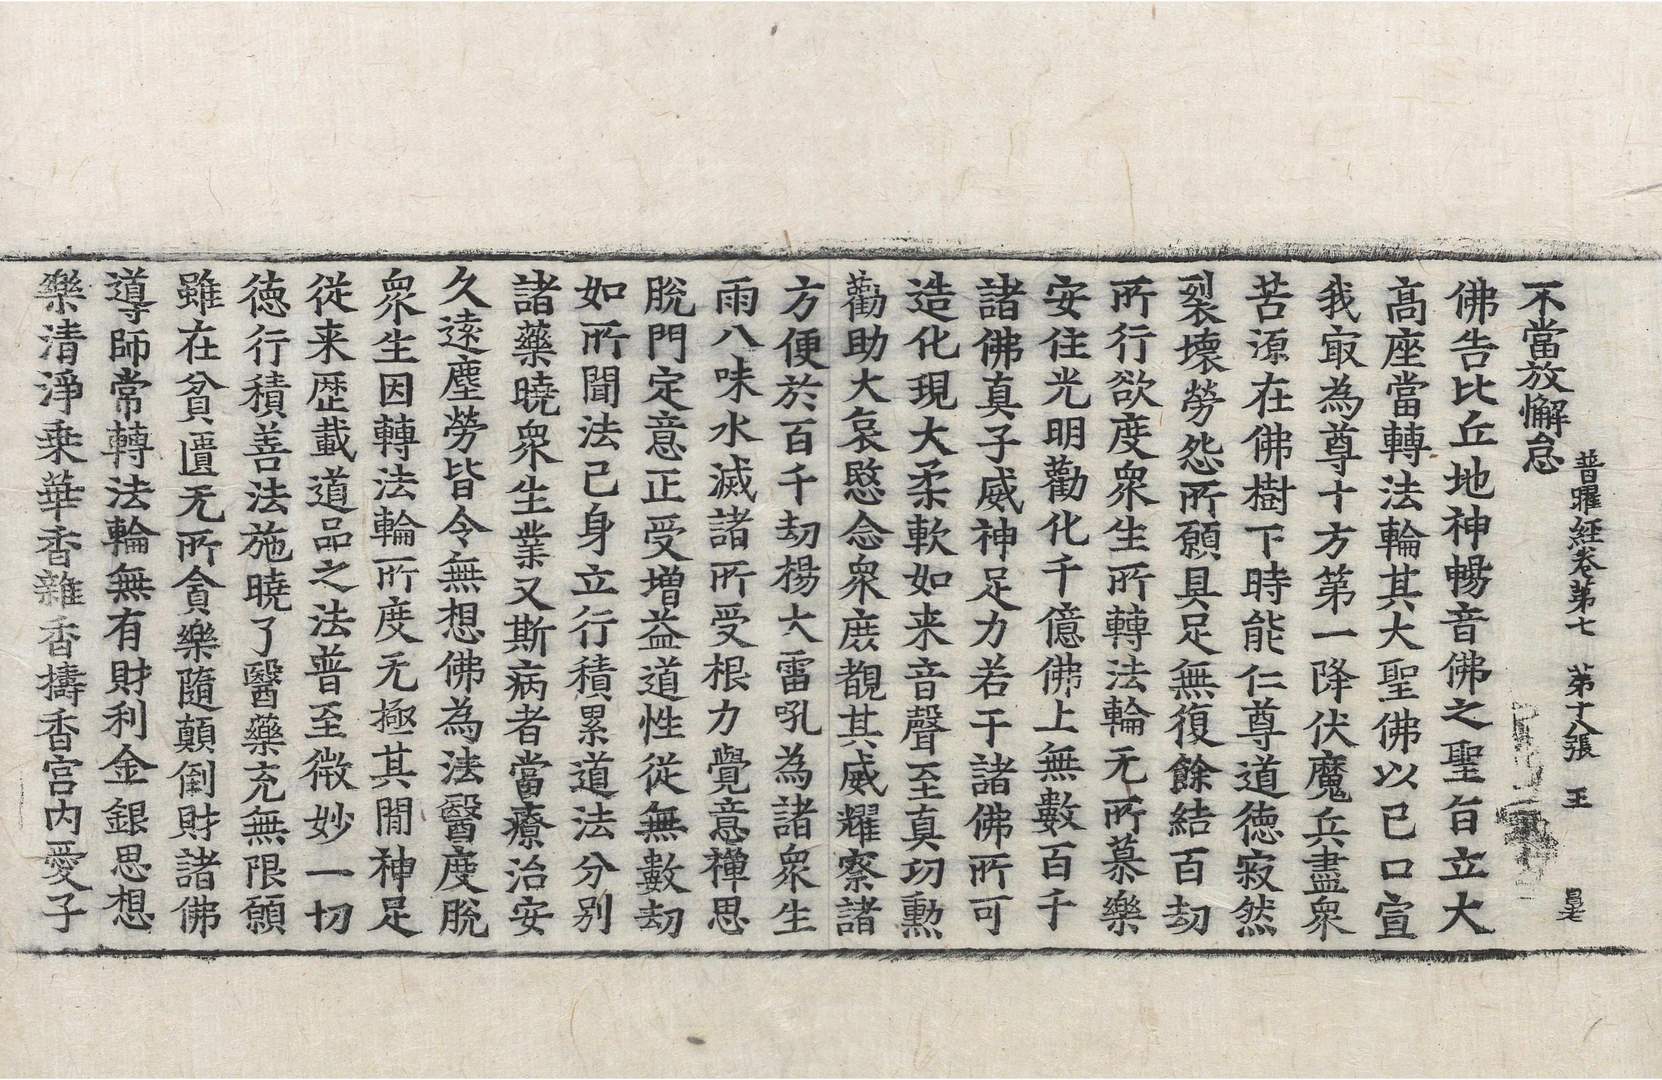 普曜經卷第七 第十八張 王
不當放懈怠
佛告比丘地神暢音佛之聖旨立大
高座當轉法輪其大聖佛以己口宣
我㝡為尊十方第一降伏魔兵盡衆
苦源在佛樹下時能仁尊道德寂然
裂壞勞怨所願具足無復餘結百劫
所行欲度衆生所轉法輪无所慕樂
安住光明勸化千億佛上無數百千
諸佛真子威神足力若干諸佛所可
造化現大柔軟如来音聲至真㓛勲
勸助大哀愍念衆庶覩其威耀察諸
方便於百千劫楊大雷吼為諸衆生
雨八味水滅諸所受根力覺意禪思
脫門定意正受增益道性從無數劫
如所聞法已身立行積累道法分別
諸藥曉衆生業又斯病者當療治安
久遠塵勞皆令無想佛為法醫度脫
衆生因轉法輪所度无極其閒神足
從来歷載道品之法普至微妙一切
德行積善法施曉了醫藥充無限願
雖在貧匱无所貪樂隨顛倒財諸佛
導師常轉法輪無有財利金銀思想
樂清淨乘華香雜香擣香宮內愛子